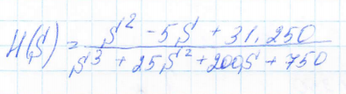 H(S) = (S² - 5S + 31,250) / (S³ + 25S² + 200S + 750)